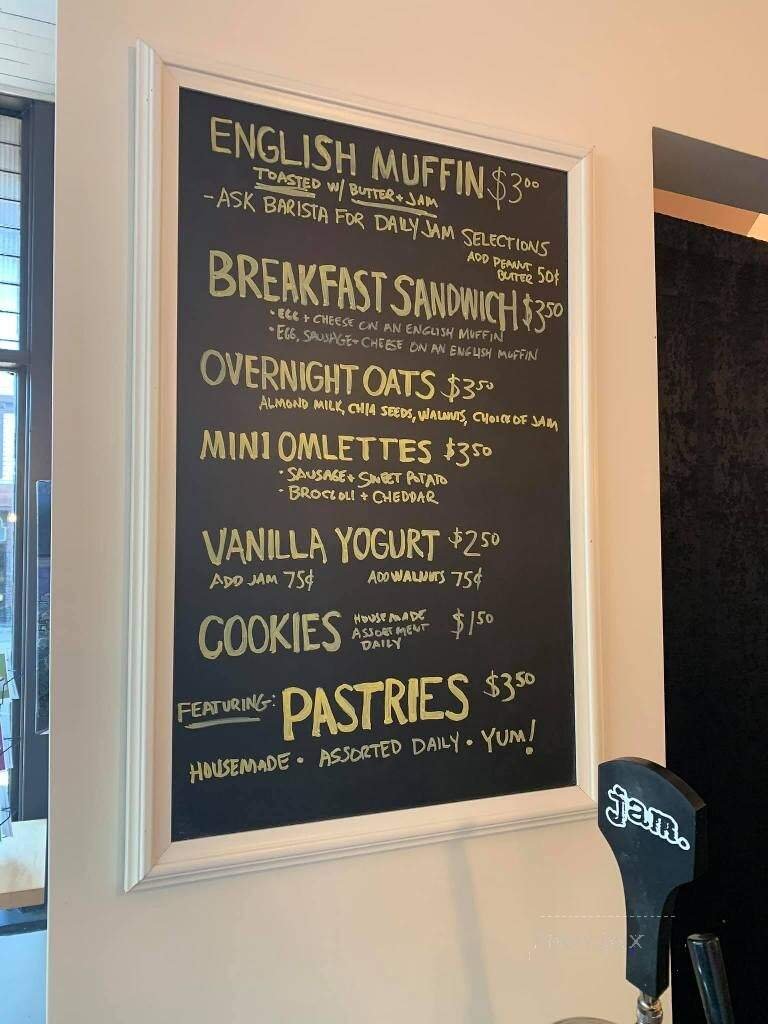 ENGLISH MUFFIN $3⁰⁰
TOASTED W/ BUTTER + JAM
- ASK BARISTA FOR DAILY JAM SELECTIONS
ADD PEANUT
BUTTER 50¢
BREAKFAST SANDWICH $3⁵⁰
• EGG + CHEESE ON AN ENGLISH MUFFIN
• EGG, SAUSAGE + CHEESE ON AN ENGLISH MUFFIN
OVERNIGHT OATS $3⁵⁰
ALMOND MILK, CHIA SEEDS, WALNUTS, CHOICE OF JAM
MINI OMLETTES $3⁵⁰
• SAUSAGE + SWEET POTATO
• BROCCOLI + CHEDDAR
VANILLA YOGURT $2⁵⁰
ADD JAM 75¢ ADD WALNUTS 75¢
COOKIES HOUSEMADE ASSORTMENT DAILY $1⁵⁰
FEATURING: PASTRIES $3⁵⁰
HOUSEMADE • ASSORTED DAILY • YUM!
jam.